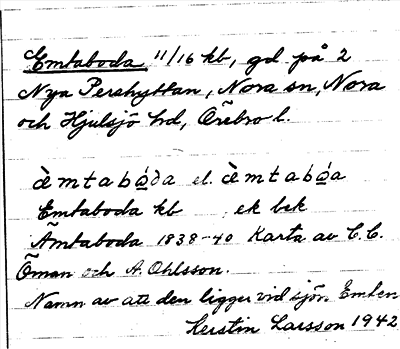 Emtaboda 11/16 kb, gd på 2
Nya Pershyttan, Nora sn, Nora
och Hjulsjö hd, Örebro l.
ä̀mtabo̱̊́da el. ä̀mtabo̱̊́a
Emtaboda kb ek bek
Ämtaboda 1838-40 Karta av C.C.
Öman och A. Ohlsson.
Namn av att den ligger vid sjön Emten
Kerstin Larsson 1942